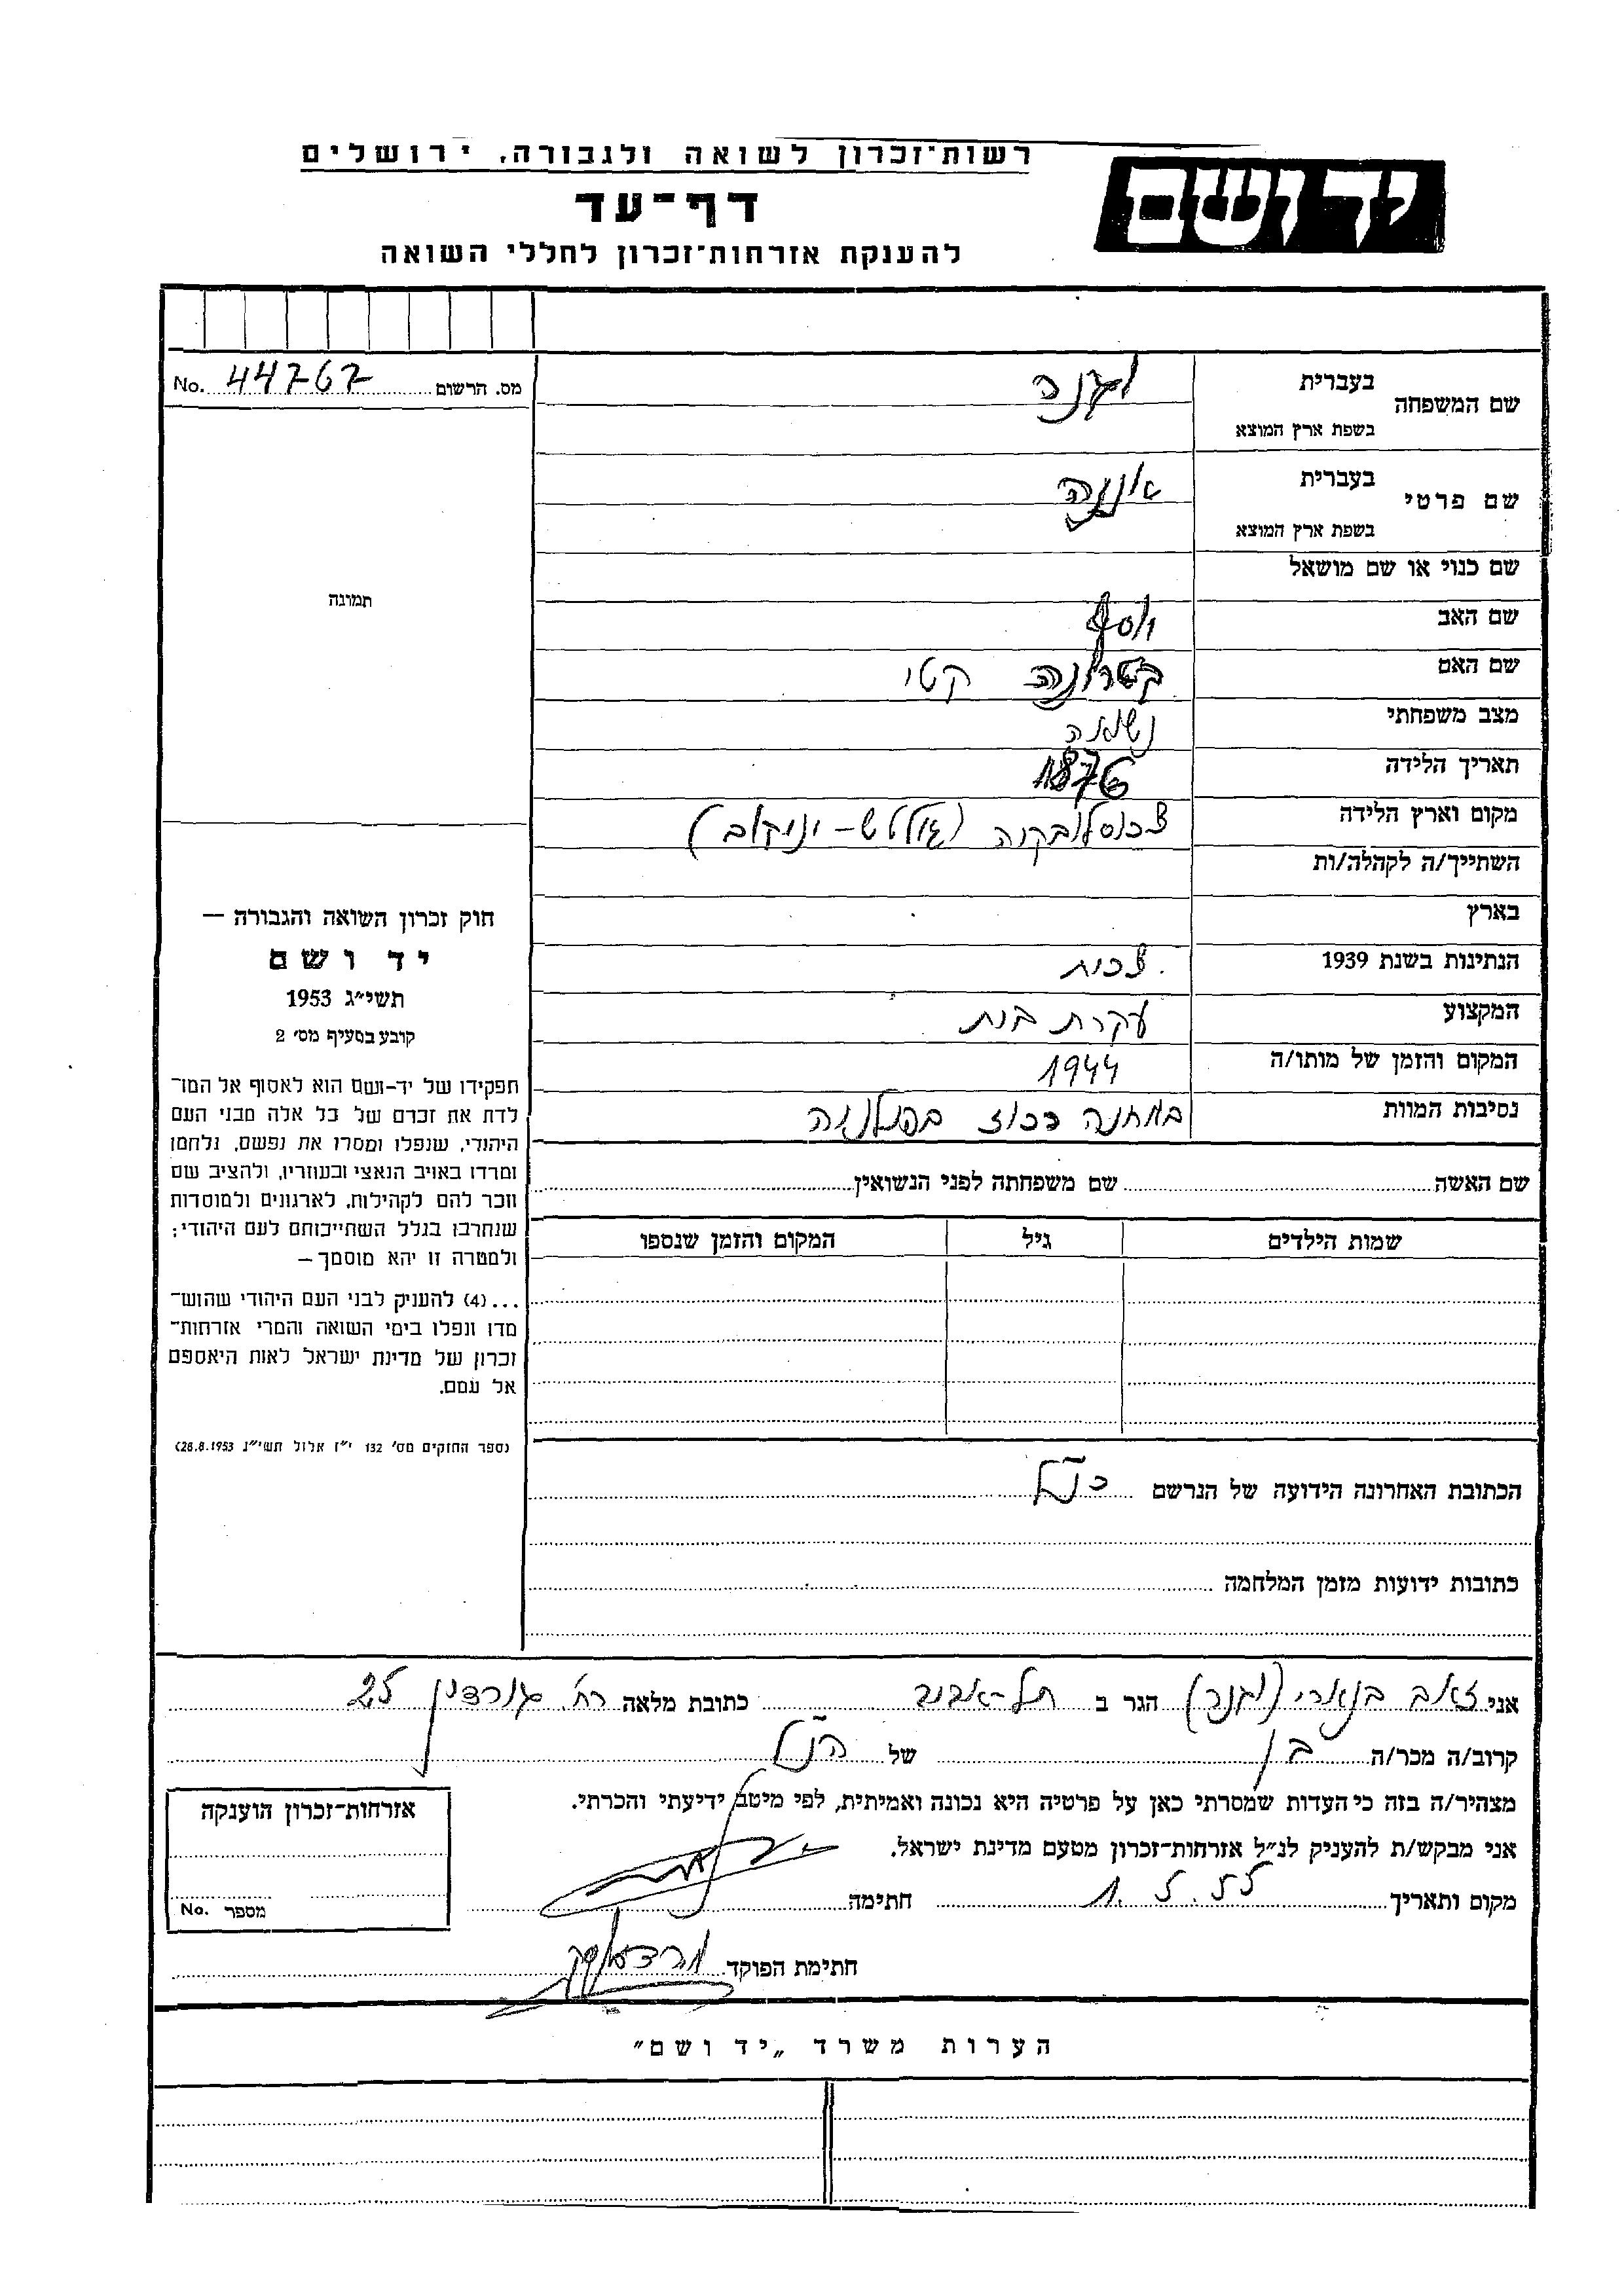 רשות־זכרון לשואה ולגבורה, ירושלים
יד ושם
דף־עד
להענקת אזרחות־זכרון לחללי השואה
מס. הרשום 44767 No.
שם המשפחה
בעברית
בשפת ארץ המוצא
שם פרטי
בעברית
בשפת ארץ המוצא
שם כנוי או שם מושאל
שם האב יוסף
שם האם קטי
מצב משפחתי נשואה
תאריך הלידה 1876
מקום וארץ הלידה צכוסלובקיה
השתייך/ה לקהלה/ות
בארץ
הנתינות בשנת 1939 צכית
המקצוע עקרת בית
המקום והזמן של מותו/ה 1944
נסיבות המוות במחנה רכוז בפולניה
שם האשה שם משפחתה לפני הנשואין
שמות הילדים גיל המקום והזמן שנספו
הכתובת האחרונה הידועה של הנרשם כנ"ל
כתובות ידועות מזמן המלחמה
תמונה
חוק זכרון השואה והגבורה —
יד ושם
תשי״ג 1953
קובע בסעיף מס׳ 2
תפקידו של יד-ושם הוא לאסוף אל המו־
לדת את זכרם של כל אלה מבני העם
היהודי, שנפלו ומסרו את נפשם, נלחמו
ומרדו באויב הנאצי ובעוזריו, ולהציב שם
וזכר להם לקהילות, לארגונים ולמוסדות
שנחרבו בגלל השתייכותם לעם היהודי;
ולמטרה זו יהא מוסמך —
...(4) להעניק לבני העם היהודי שהוש־
מדו ונפלו בימי השואה והמרי אזרחות־
זכרון של מדינת ישראל לאות היאספם
אל עמם.
(ספר החוקים מס׳ 132 י״ז אלול תשי״ג 28.8.1953)
אני זאב בן ארי הגר ב תל-אביב כתובת מלאה רח׳ גורדון 25
קרוב/ה מכר/ה בן של הנ"ל
מצהיר/ה בזה כי העדות שמסרתי כאן על פרטיה היא נכונה ואמיתית, לפי מיטב ידיעתי והכרתי.
אני מבקש/ת להעניק לנ״ל אזרחות־זכרון מטעם מדינת ישראל.
מקום ותאריך 1.5.55 חתימה
חתימת הפוקד
אזרחות־זכרון הוענקה
מספר No.
הערות משרד „יד ושם"